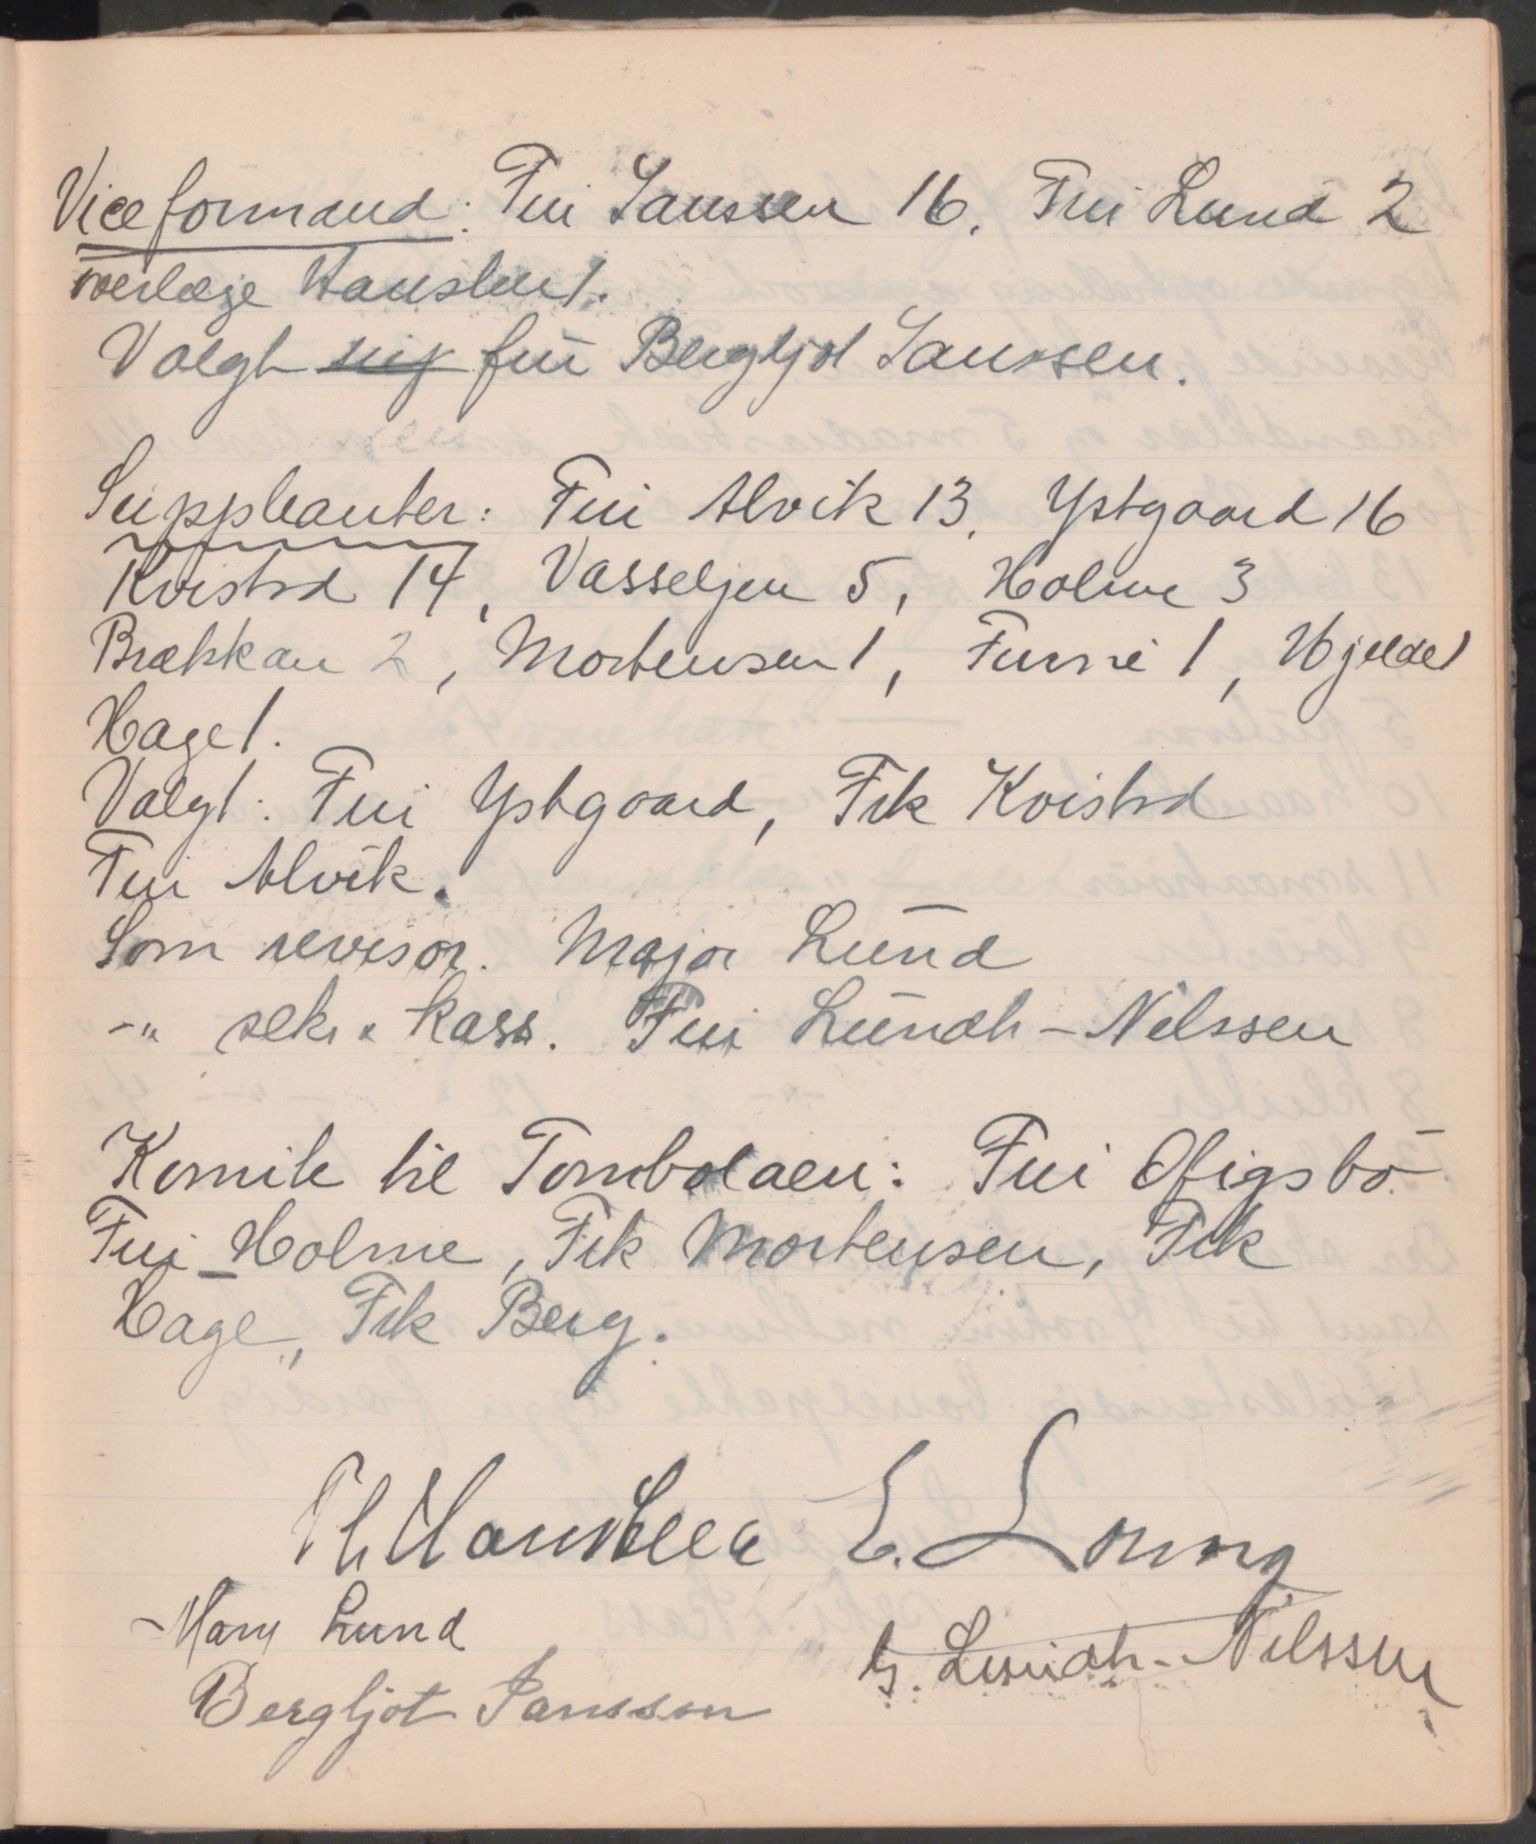 Viceformand: Fru Janssen 16. Fru Lund 2
overlæge Hansteen 1.
Valgt fru Bergljot Janssen.
Suppleanter: Fru Alvik 13, Ystgaard 16
Kvistad 14, Vasseljen 5, Holme 3
Brækkan 2, Mortensen 1, Furre 1, Hjelde 1
Hage 1.
Valgt: Fru Ystgaard, Frk Kvistad
Fru Alvik.
Som revisor. Major Lund
-"- sekr & kass. Fru Lundh-Nilssen
Komite til Tombolaen: Fru Ofigsbø
Fru Holme, Frk Mortensen, Frk
Hage, Frk Berg.
Th Hansteen E.
Mary Lund
G. Lundh-Nilssen
Bergljot Janssen